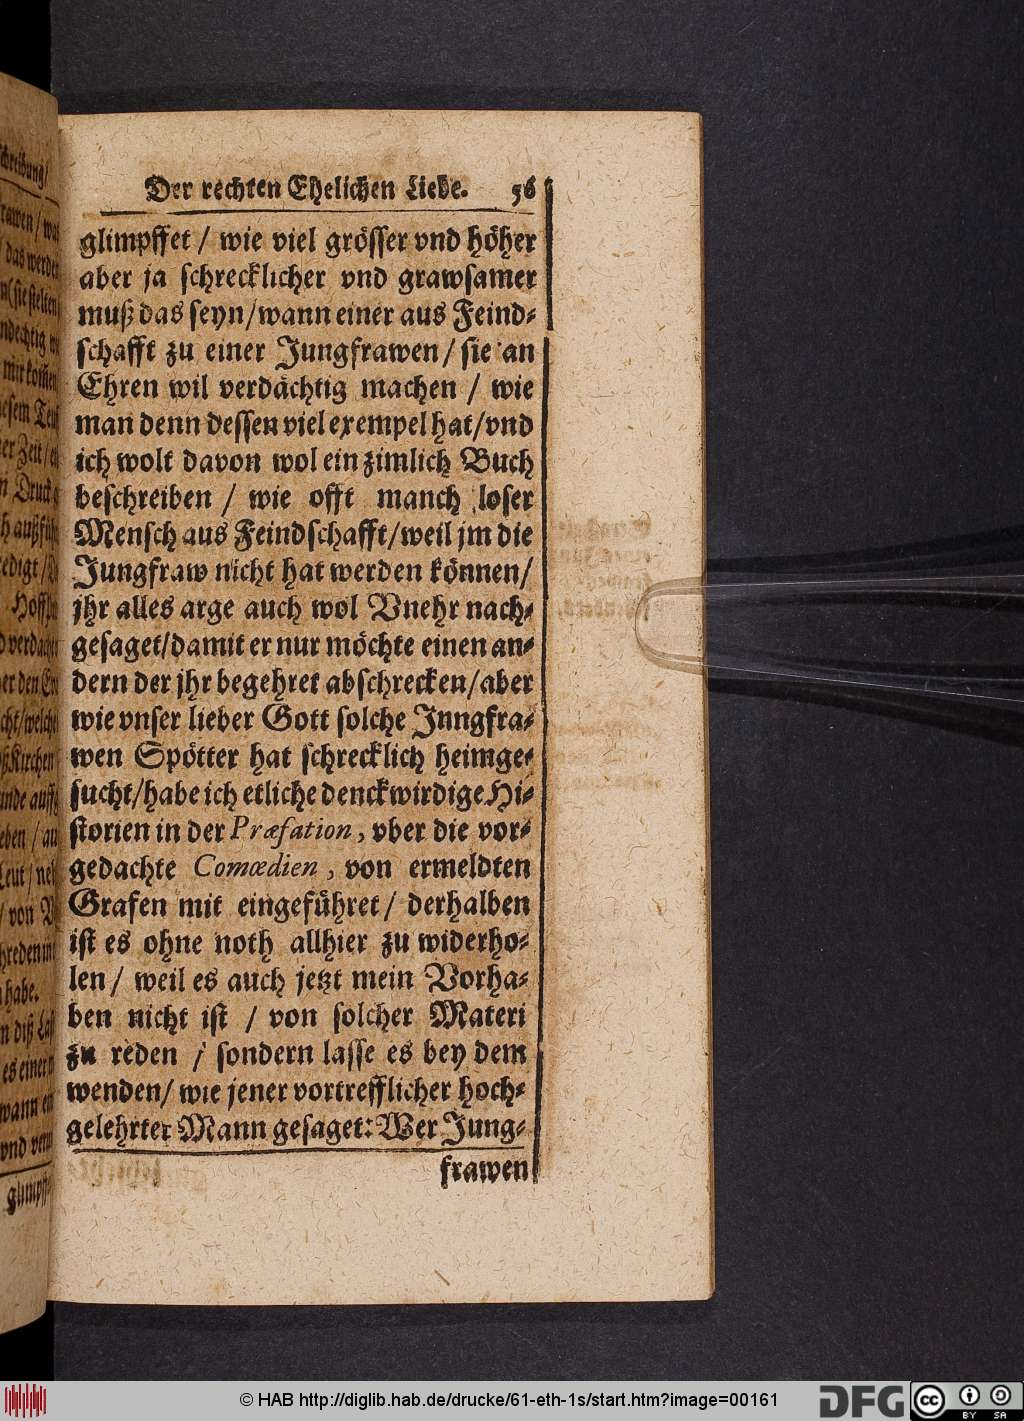 Der rechten Ehelichen Liebe. 56
glimpffet / wie viel grösser vnd höher
aber ja schrecklicher vnd grawsamer
muß das seyn / wann einer aus Feind-
schafft zu einer Jungfrawen / sie an
Ehren wil verdächtig machen / wie
man denn dessen viel exempel hat / vnd
ich wolt davon wol ein zimlich Buch
beschreiben / wie offt manch loser
Mensch aus Feindschafft / weil jm die
Jungfraw nicht hat werden können /
jhr alles arge auch wol Vnehr nach-
gesaget / damit er nur möchte einen an-
dern der jhr begehret abschrecken / aber
wie vnser lieber Gott solche Jnngfra-
wen Spötter hat schrecklich heimge-
sucht / habe ich etliche denckwirdige Hi-
storien in der Præfation, vber die vor-
gedachte Comœdien, von ermeldten
Grafen mit eingeführet / derhalben
ist es ohne noth allhier zu widerho-
len / weil es auch jetzt mein Vorha-
ben nicht ist / von solcher Materi
zu reden / sondern lasse es bey dem
wenden / wie jener vortrefflicher hoch-
gelehrter Mann gesaget: Wer Jung-
frawen
© HAB http://diglib.hab.de/drucke/61-eth-1s/start.htm?image=00161
DFG
cc BY SA